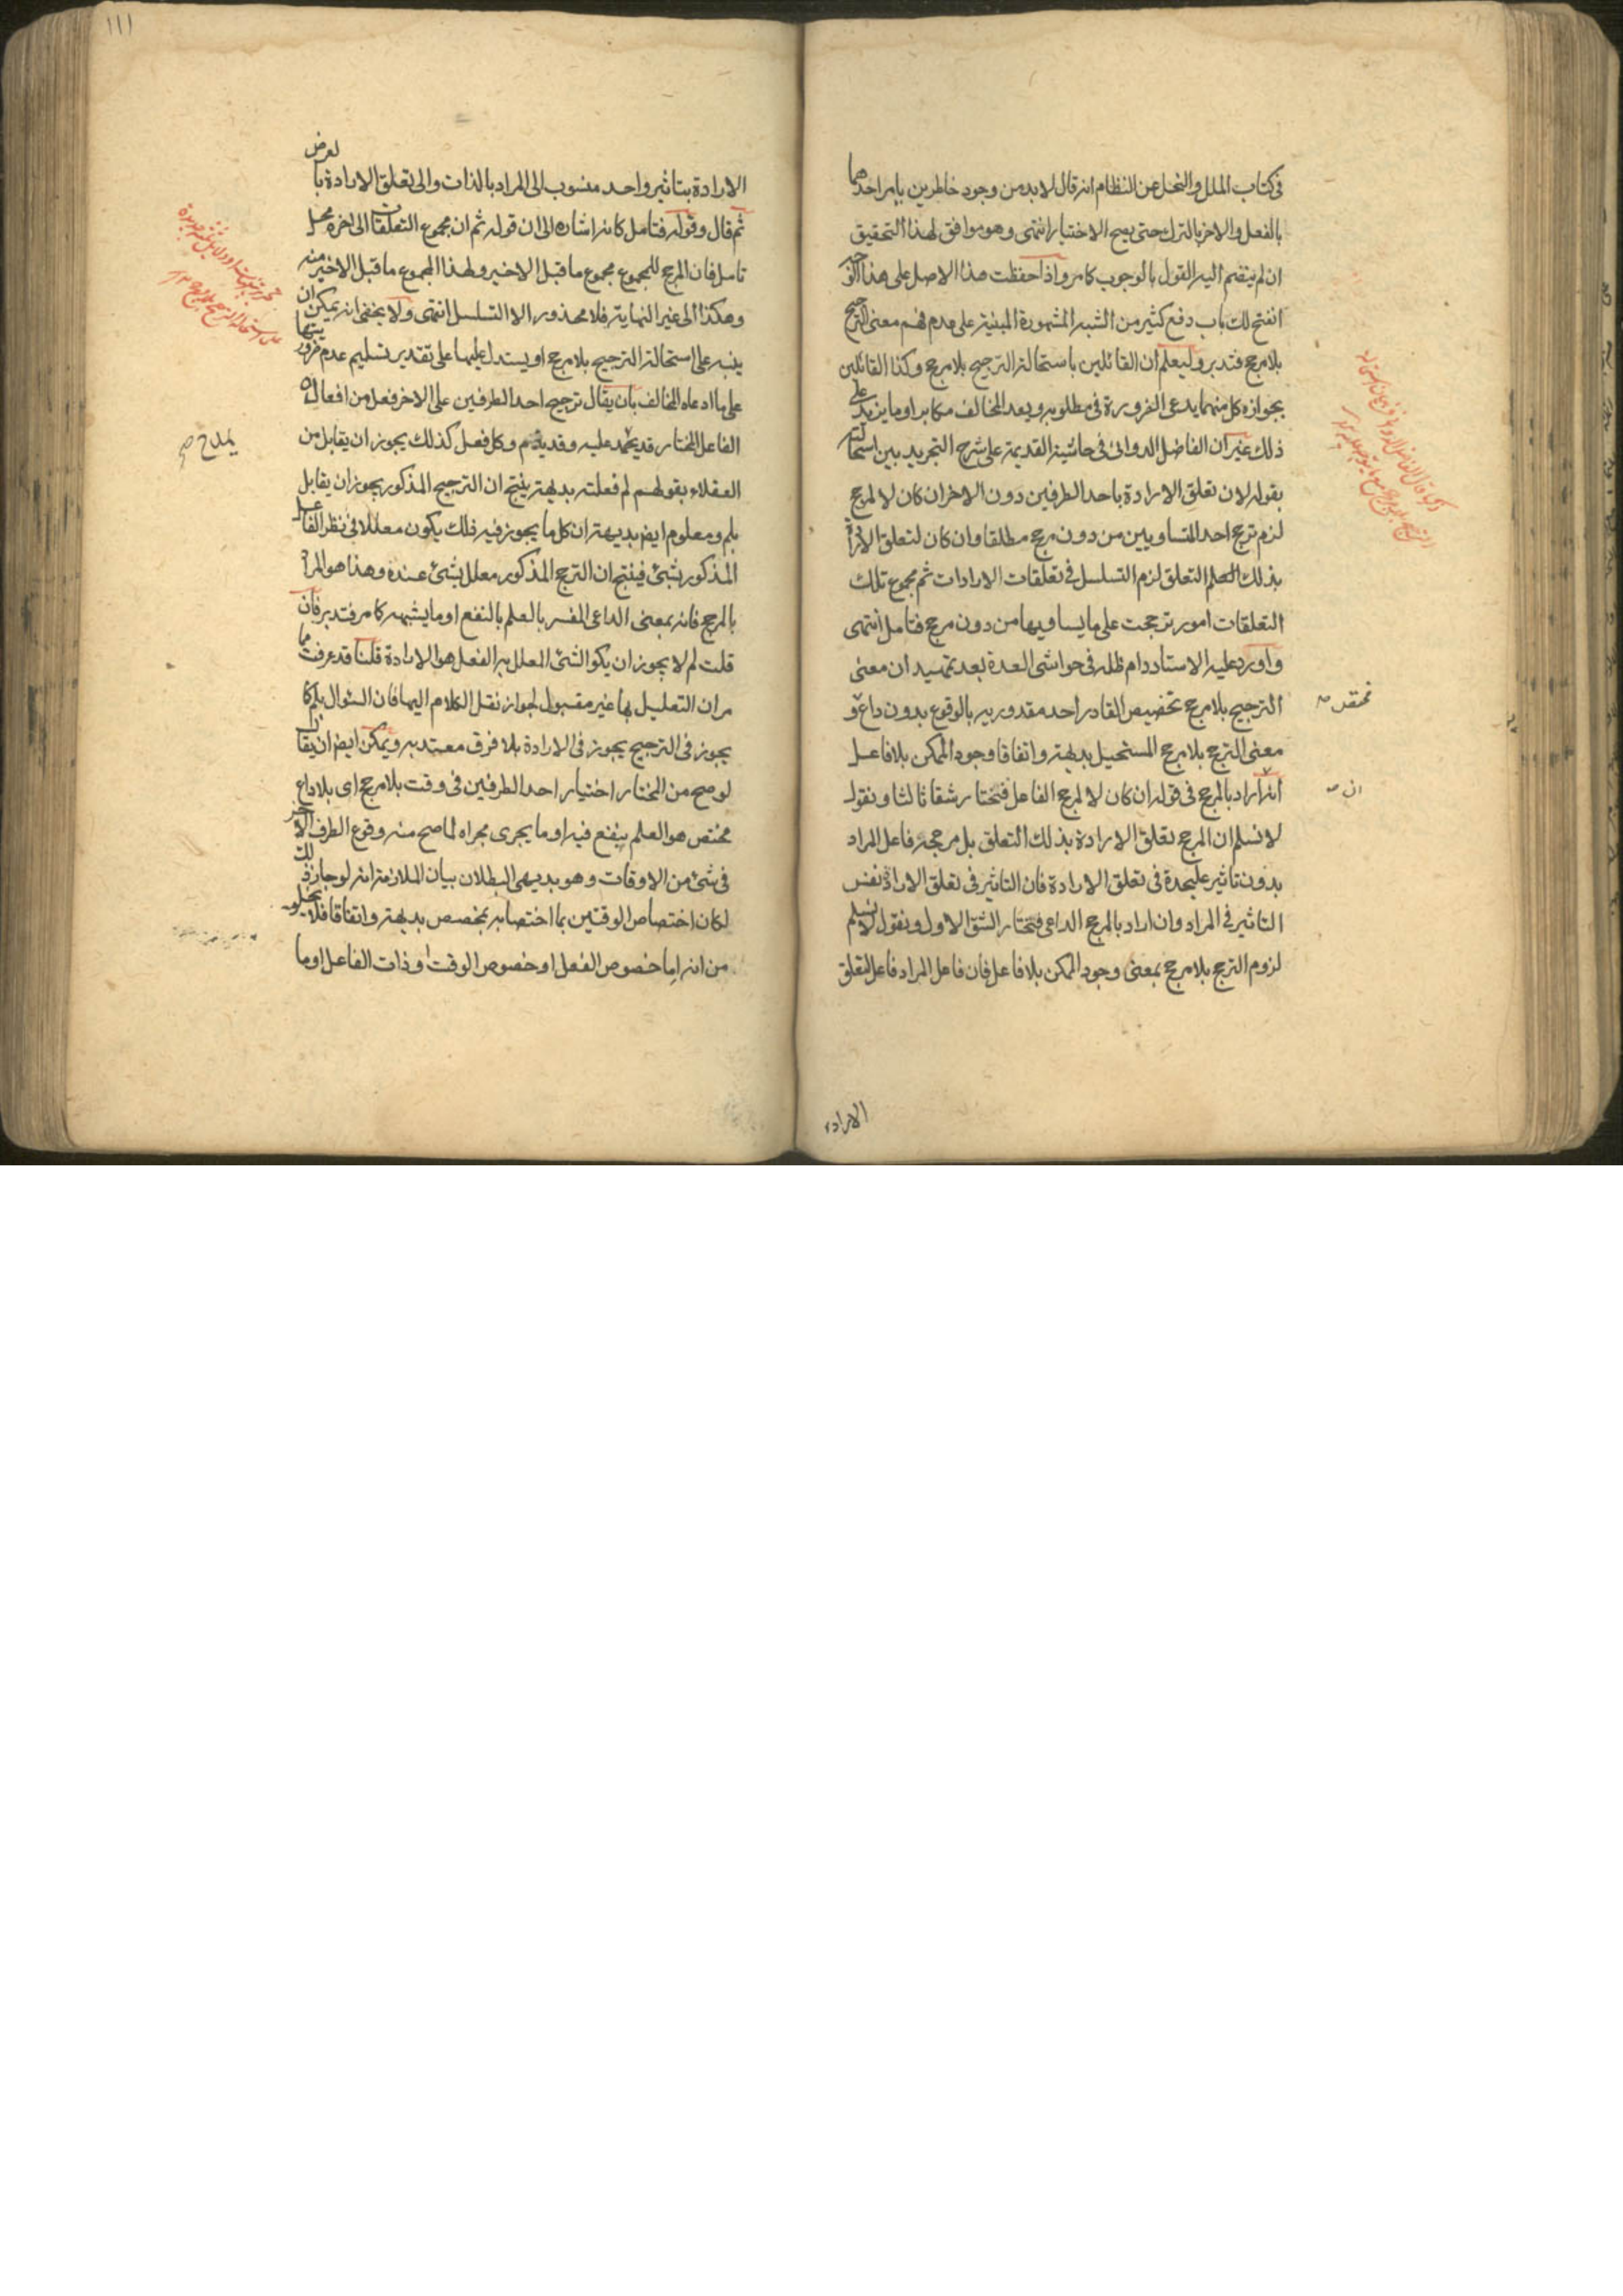 في كتاب الملل والنحل عن النظام انه قال لا بد من وجود خاطرين يامر احدهما
بالفعل والاخر بالترك حتى يصح الاختيار انتهى وهو موافق لهذا التحقيق
ان لم ينضم اليه القول بالوجوب كما مر واذا حفظت هذا الاصل على هذا الوجه
انفتح لك باب دفع كثير من الشبه المشهورة المبنية على عدم فهم معنى الترجيح
بلا مرجح فتدبر وليعلم ان القائلين باستحالة الترجيح بلا مرجح وكذا القائلين
بجوازه كل منهما يدعى الضرورة في مطلوبه ويعد المخالف مكابرا وما يزيد على
ذلك غير ان الفاضل الدواني في حاشية القديمة على شرح التجريد بين استحالته
بقوله لان تعلق الارادة باحد الطرفين دون الاخر ان كان لا لمرجح
لزم ترجح احد المتساويين من دون مرجح مطلقا وان كان لتعلق الارادة
بذلك التعلق لزم التسلسل في تعلقات الارادات ثم مجموع تلك
التعلقات امور ترجحت على ما يساويها من دون مرجح فتامل انتهى
واورد عليه الاستاد دام ظله في حواشي العدة بعد تمهيد ان معنى
الترجيح بلا مرجح تخصيص القادر احد مقدوريه بالوقوع بدون داع و
معنى الترجح بلا مرجح المستحيل بديهة واتفاقا وجود الممكن بلا فاعل
انه اراد بالمرجح في قوله ان كان لا لمرجح الفاعل فنختار شقا ثالثا ونقول
لا نسلم ان المرجح تعلق الارادة بذلك التعلق بل مرجحه فاعل المراد
بدون تاثير عليحدة في تعلق الارادة فان التاثير في تعلق الارادة نفس
التاثير في المراد وان اراد بالمرجح الداعي فنختار الشق الاول ونقول لا نسلم
لزوم الترجح بلا مرجح بمعنى وجود الممكن بلا فاعل فان فاعل المراد فاعل لتعلق
الارادة
ان
١١١
الارادة بتاثير واحد منسوب الى المراد بالذات والى تعلق الارادة بالعرض
ثم قال وقوله فتامل كانه اشارة الى ان قوله ثم ان مجموع التعلقات الى اخره محل
تامل فان المرجح للمجموع مجموع ما قبل الاخير ولهذا المجموع ما قبل الاخير منه
وهكذا الى غير النهاية فلا محذور الا التسلسل انتهى ولا يخفى انه يمكن ان
ينبه على استحالة الترجيح بلا مرجح او يستدل عليها على تقدير تسليم عدم ضروريتها
على ما ادعاه المخالف بان يقال ترجيح احد الطرفين على الاخر فعل من افعال
الفاعل المختار قد يحمد عليه وقد يذم وكل فعل كذلك يجوز ان يقابل من
العقلاء بقولهم لم فعلته بديهة ينتج ان الترجيح المذكور يجوز ان يقابل
بلم ومعلوم ايضا بديهة ان كل ما يجوز فيه ذلك يكون معللا في نظر الفاعل
المذكور بشئ فينتج ان الترجح المذكور معلل بشئ عنده وهذا هو المراد
بالمرجح فانه بمعنى الداعي المفسر بالعلم بالنفع او ما يشبهه كما مر فتدبر فان
قلت لم لا يجوز ان يكون الشئ المعلل به الفعل هو الارادة قلنا قد عرفت مما
مر ان التعليل بها غير مقبول لجواز نقل الكلام اليها فان السئوال بلم كما
يجوز في الترجيح يجوز في الارادة بلا فرق معتد به ويمكن ايضا ان يقال
لو صح من المختار اختيار احد الطرفين في وقت بلا مرجح اى بلا داع
مختص هو العلم بنفع فيه او ما يجرى مجراه لما صح منه وقوع الطرف الاخر
في شئ من الاوقات وهو بديهي البطلان بيان الملازمة انه لو جاز ذلك
لكان اختصاص الوقتين بما اختصا به بمخصص بديهة واتفاقا فلا يخلو
من انه اما خصوص الفعل او خصوص الوقت او ذات الفاعل او ما